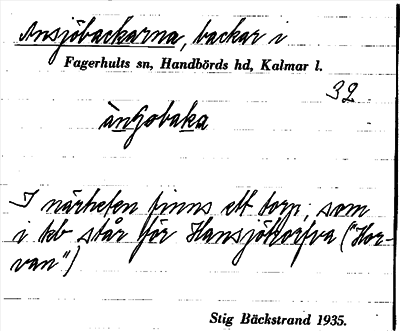 Ansjöbackarna, backar i
Fagerhults sn, Handbörds hd, Kalmar l.
32
àngobaka
I närheten finns ett torp, som
i kb står för Hansjötorfva ("Hor-
van")
Stig Bäckstrand 1935.